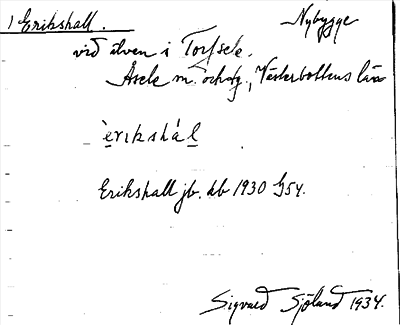 1 Erikshall. Nybygge
vid älven i Torfsele.
Åsele m. o. hdg., Västerbottens län
èrikshál
Erikshall jb. db 1930 G54.
Sigvard Sjöland 1934.